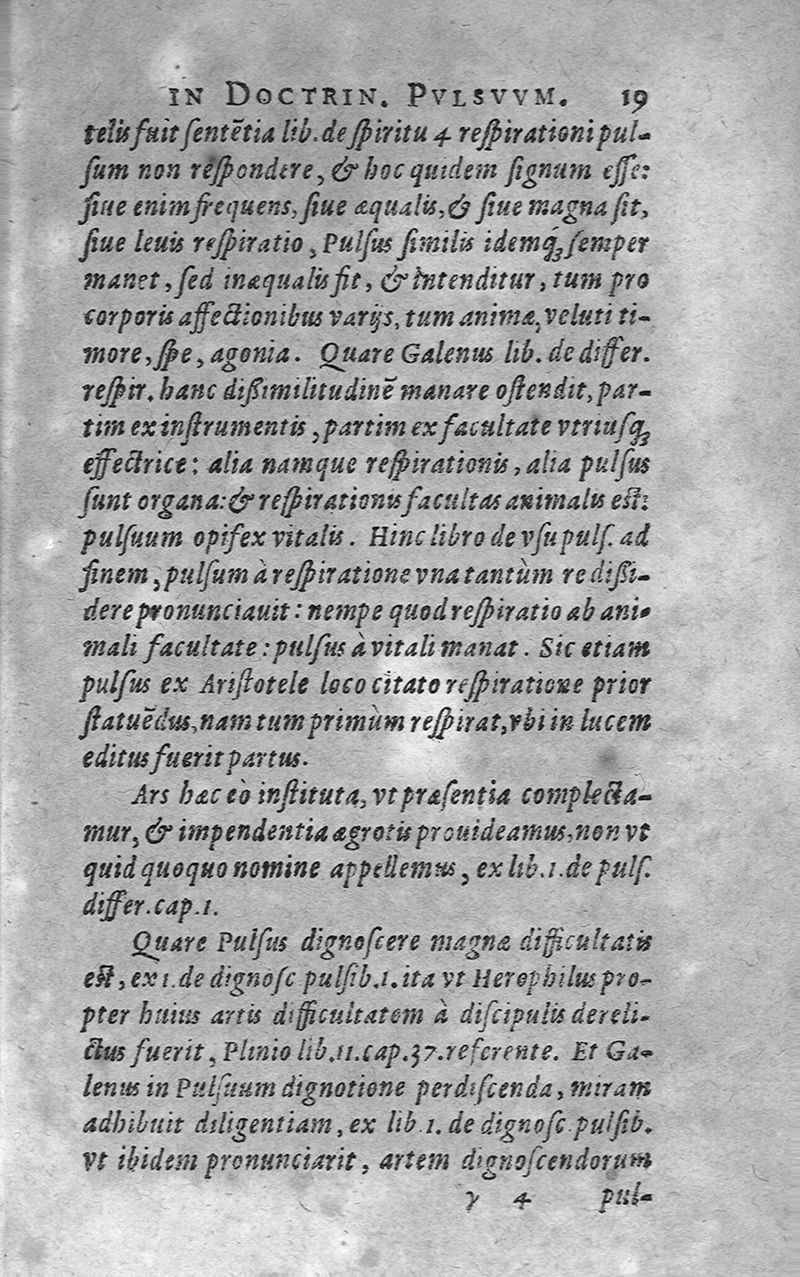 IN DOCTRIN. PVLSVVM. 19
telis fuit ſentẽtia lib. de ſpiritu 4 reſpirationi pul-
ſum non reſpondere, & hoc quidem ſignum eſſe:
ſiue enim frequens, ſiue æqualis, & ſiue magna ſit,
ſiue leuis reſpiratio, Pulſus ſimilis idemq́ꝫ ſemper
manet, ſed inæqualis fit, & intenditur, tum pro
corporis affectionibus varijs, tum animæ, veluti ti-
more, ſpe, agonia. Quare Galenus lib. de differ.
reſpir. hanc dißimilitudinẽ manare oſtendit, par-
tim ex inſtrumentis, partim ex facultate vtriuſqꝫ
effectrice: alia namque reſpirationis, alia pulſus
ſunt organa: & reſpirationis facultas animalis eſt:
pulſuum opifex vitalis. Hinc libro de vſu pulſ. ad
finem, pulſum à reſpiratione vna tantùm re dißi-
dere pronunciauit: nempe quod reſpiratio ab ani-
mali facultate: pulſus à vitali manat. Sic etiam
pulſus ex Ariſtotele loco citato reſpiratione prior
ſtatuẽdus, nam tum primùm reſpirat, vbi in lucem
editus fuerit partus.
Ars hæc eò inſtituta, vt præſentia complecta-
mur, & impendentia ægrotis prouideamus, non vt
quid quoquo nomine appellemus, ex lib. 1. de pulſ.
differ. cap. 1.
Quare Pulſus dignoſcere magnæ difficultatis
eſt, ex 1. de dignoſc pulſib. 1. ita vt Herophilus pro-
pter huius artis difficultatem à diſcipulis dereli-
ctus fuerit, Plinio lib. 11. cap. 37. referente. Et Ga-
lenus in Pulſuum dignotione perdiſcenda, miram
adhibuit diligentiam, ex lib. 1. de dignoſc. pulſib.
vt ibidem pronunciarit, artem dignoſcendorum
y 4 pul-